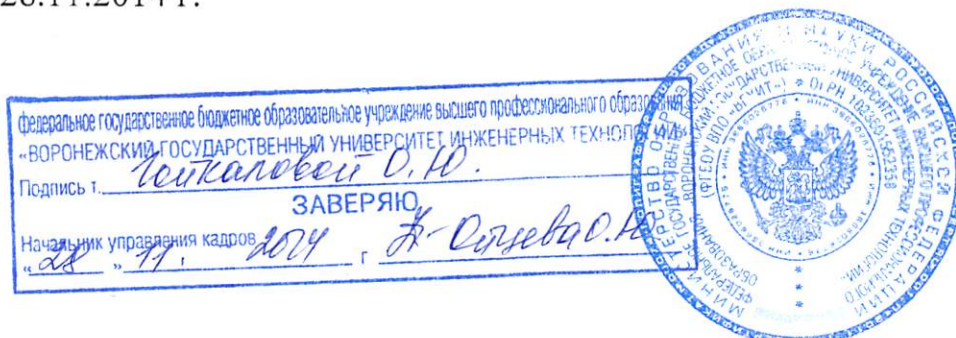 28.11.2014 г.
федеральное государственное бюджетное образовательное учреждение высшего профессионального образования
«ВОРОНЕЖСКИЙ ГОСУДАРСТВЕННЫЙ УНИВЕРСИТЕТ ИНЖЕНЕРНЫХ ТЕХНОЛОГИЙ»
Подпись т. Гойкаловой О.Ю.
ЗАВЕРЯЮ
Начальник управления кадров
"28" 11. 2014 г О.Ю.
МИНИСТЕРСТВО ОБРАЗОВАНИЯ И НАУКИ РОССИЙСКОЙ ФЕДЕРАЦИИ